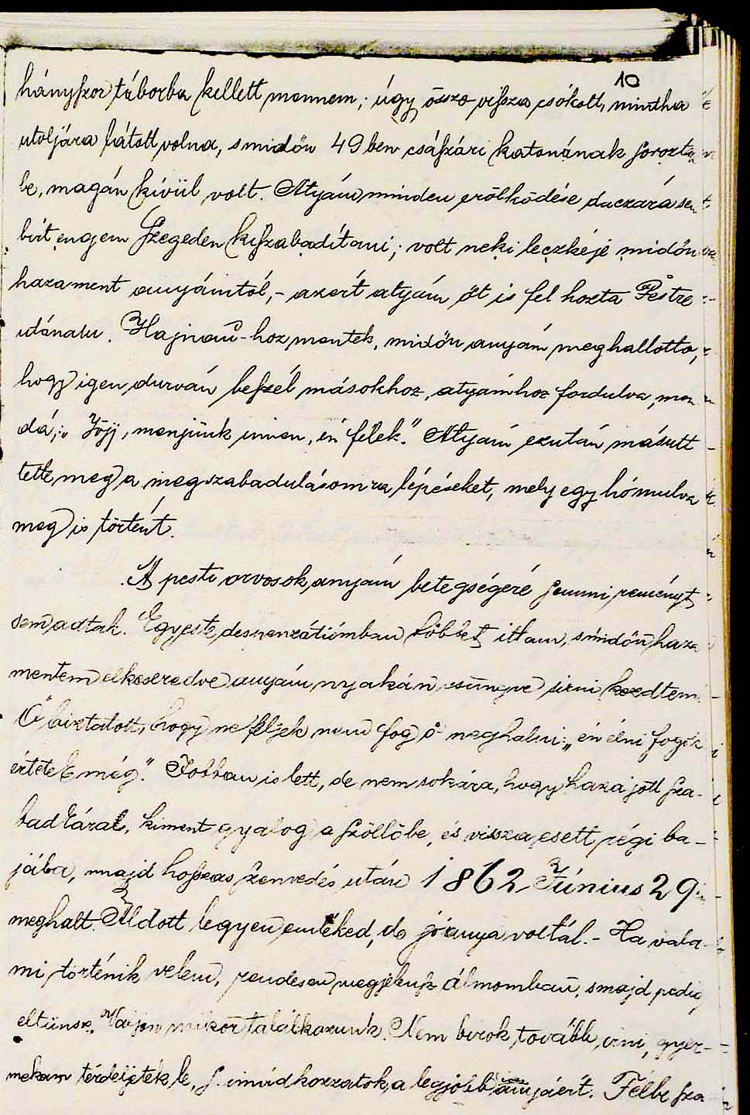 10
hányszor táborba kellett mennem; úgy össze vissza csókolt, mintha
utoljára látott volna, s midőn 49 ben császári katonának sorozta
be, magán kívül volt. Atyám minden erőlködése daczára sem
birt engem Szegeden kiszabadítani; volt neki leczkéje midőn
hazament anyámtól, – azért atyám őt is fel hozta Pestre
utánam. Hajnau-hoz mentek, midőn anyám meghallotta,
hogy igen durván beszél másokhoz, atyámhoz fordulva, mon
dá; „Jőjj, menjünk innen, én félek." Atyám ezután másutt
tette meg a megszabadulásomra lépéseket, mely egy hó mulva
meg is történt.
A pesti orvosok anyám betegségére semmi reményt
sem adtak. Egy este desperátiómban többet ittam, s midőn haza
mentem elkeseredve anyám nyakán csüngve sirni kezdtem.
Ő biztatott, hogy ne féljek nem fog ő meghalni: „én élni fogok
értetek még." Jobban is lett, de nem sokára, hogy haza jött Sza-
badkára, kiment gyalog a szőllőbe, és vissza esett régi ba-
jába, majd hosszas szenvedés után 1862 Június 29
meghalt. Áldott legyen emléked, de jó anya voltál. – Ha vala-
mi történik velem, rendesen megjelensz álmomban, s majd pedig
eltünsz. Vajjon mikor találkozunk. Nem birok tovább irni, gyer-
mekem térdeljetek le, s imádkozzatok a legjobb anyáért. Félbe sza